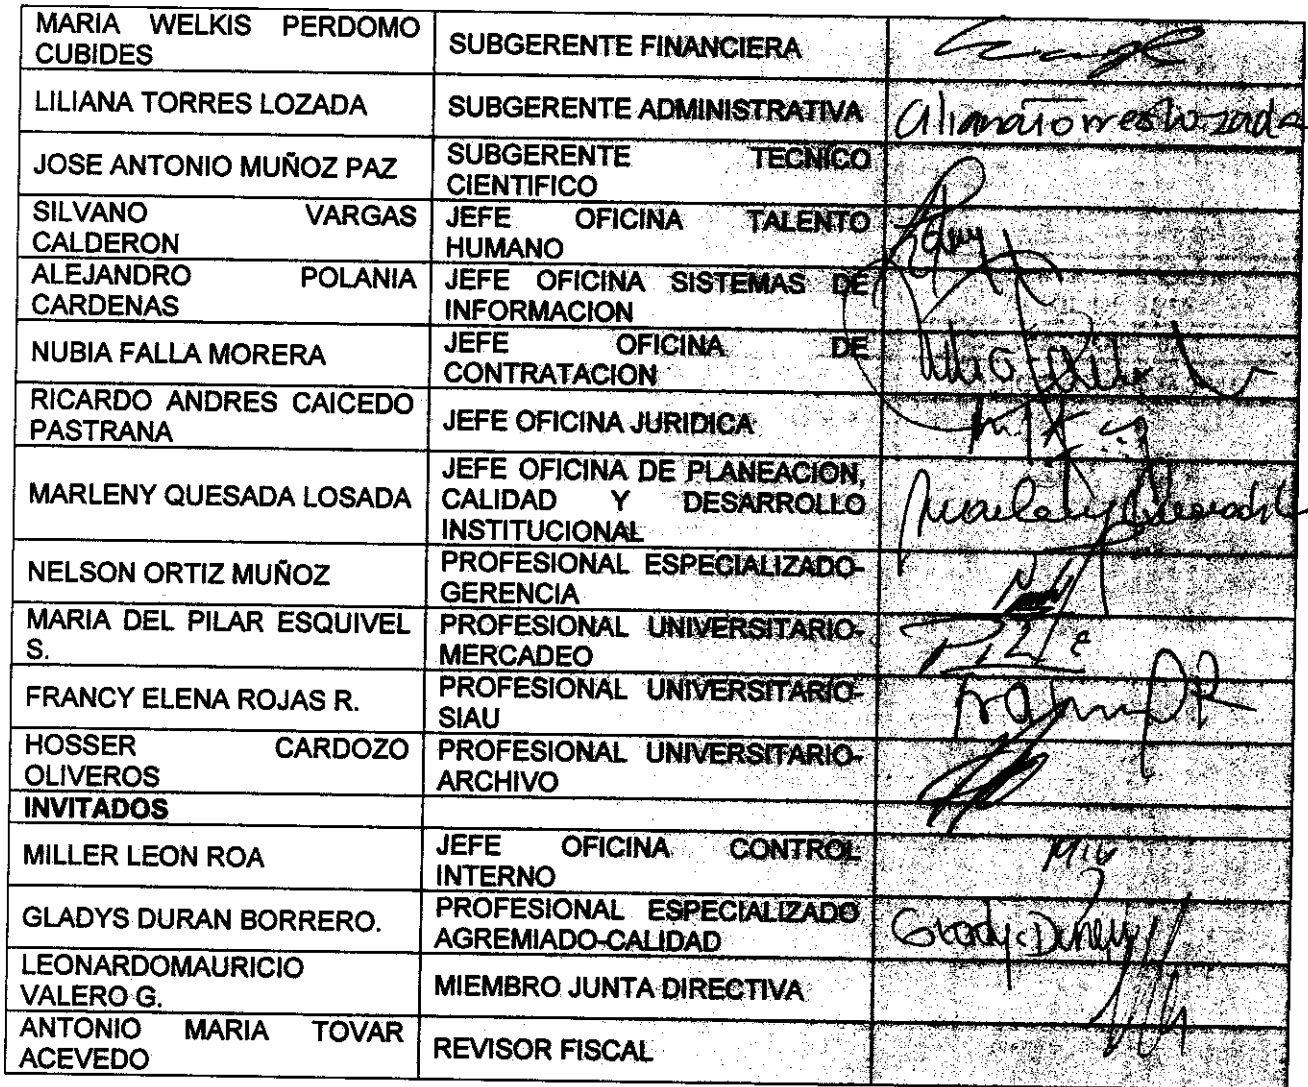 MARIA WELKIS PERDOMO
CUBIDES
SUBGERENTE FINANCIERA
LILIANA TORRES LOZADA
SUBGERENTE ADMINISTRATIVA
JOSE ANTONIO MUÑOZ PAZ
SUBGERENTE TECNICO
CIENTIFICO
SILVANO VARGAS
CALDERON
JEFE OFICINA TALENTO
HUMANO
ALEJANDRO POLANIA
CARDENAS
JEFE OFICINA SISTEMAS DE
INFORMACION
NUBIA FALLA MORERA
JEFE OFICINA DE
CONTRATACION
RICARDO ANDRES CAICEDO
PASTRANA
JEFE OFICINA JURIDICA
MARLENY QUESADA LOSADA
JEFE OFICINA DE PLANEACION,
CALIDAD Y DESARROLLO
INSTITUCIONAL
NELSON ORTIZ MUÑOZ
PROFESIONAL ESPECIALIZADO-
GERENCIA
MARIA DEL PILAR ESQUIVEL
S.
PROFESIONAL UNIVERSITARIO-
MERCADEO
FRANCY ELENA ROJAS R.
PROFESIONAL UNIVERSITARIO-
SIAU
HOSSER CARDOZO
OLIVEROS
PROFESIONAL UNIVERSITARIO-
ARCHIVO
INVITADOS
MILLER LEON ROA
JEFE OFICINA CONTROL
INTERNO
GLADYS DURAN BORRERO.
PROFESIONAL ESPECIALIZADO
AGREMIADO-CALIDAD
LEONARDOMAURICIO
VALERO G.
MIEMBRO JUNTA DIRECTIVA
ANTONIO MARIA TOVAR
ACEVEDO
REVISOR FISCAL